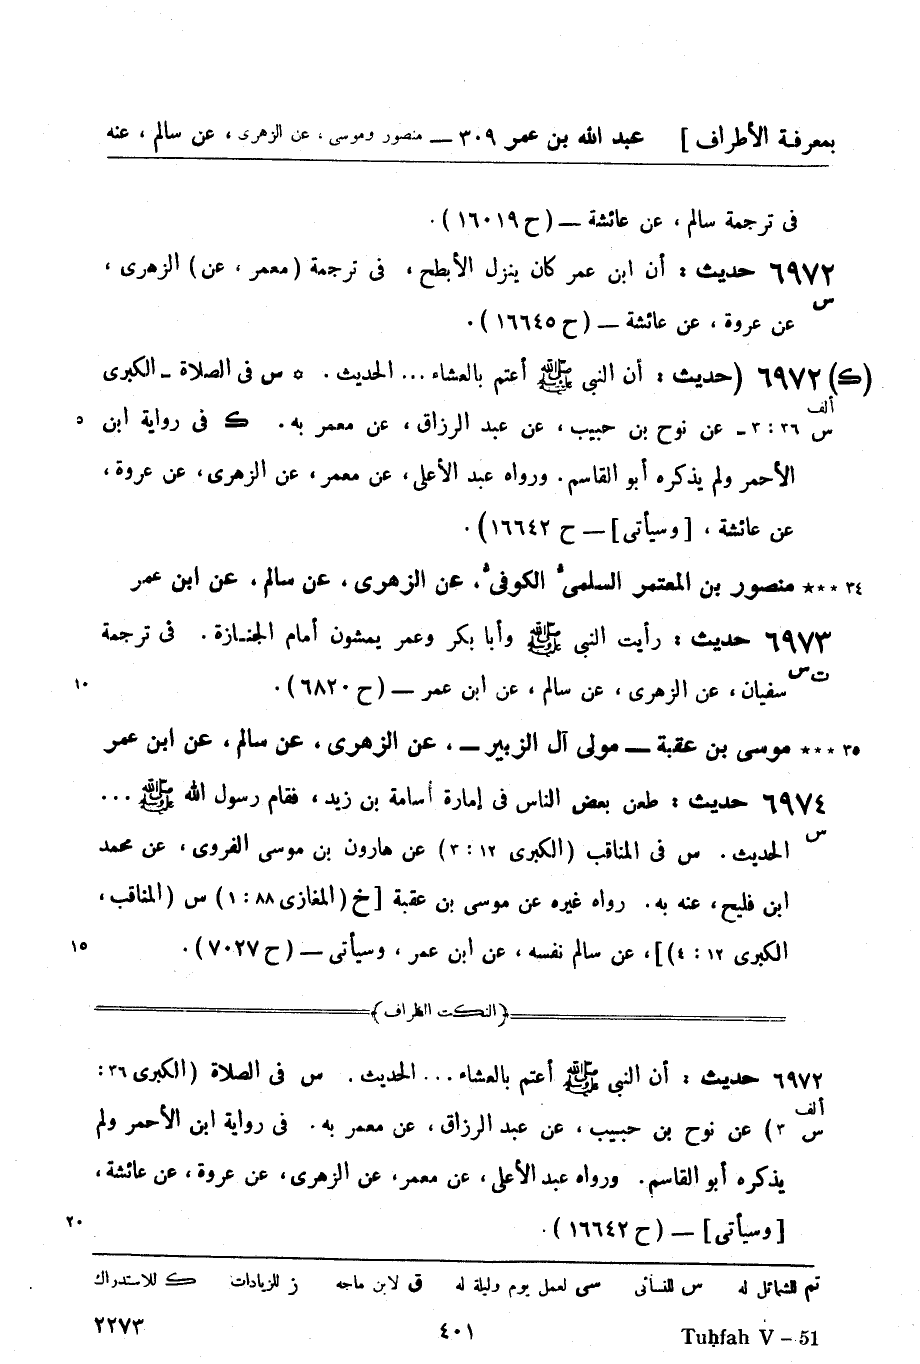 بمعرفة الأطراف ] عبد الله بن عمر ٣٠٩ — منصور وموسى ، عن الزهرى ، عن سالم ، عنه
فى ترجمة سالم ، عن عائشة — ( ح ١٦٠١٩ ) .
٦٩٧٢ حديث : أن ابن عمر كان ينزل الأبطح ، فى ترجمة ( معمر ، عن ) الزهرى ،
س
عن عروة ، عن عائشة — ( ح ١٦٦٤٥ ) .
(ك) ٦٩٧٢ (حديث : أن النبي ﷺ أعتم بالعشاء ... الحديث . * س فى الصلاة ـ الكبرى
ألف
س ٣٦ : ٣ ـ عن نوح بن حبيب ، عن عبد الرزاق ، عن معمر به . ك فى رواية ابن ٥
الأحمر ولم يذكره أبو القاسم . ورواه عبد الأعلى ، عن معمر ، عن الزهرى ، عن عروة ،
عن عائشة ، [ وسيأتى ] — ح ١٦٦٤٢) .
٣٤ *** منصور بن المعتمر السلمى ْ الكوفى ْ ، عن الزهرى ، عن سالم ، عن ابن عمر
٦٩٧٣ حديث : رأيت النبي ﷺ وأبا بكر وعمر يمشون أمام الجنـازة . فى ترجمة
ت س
سفيان ، عن الزهرى ، عن سالم ، عن ابن عمر — ( ح ٦٨٢٠ ) . ١٠
٣٥ *** موسى بن عقبة — مولى آل الزبير — ، عن الزهرى ، عن سالم ، عن ابن عمر
٦٩٧٤ حديث : طعن بعض الناس فى إمارة أسامة بن زيد ، فقام رسول الله ﷺ ...
س
الحديث . س فى المناقب ( الكبرى ١٢ : ٣ ) عن هارون بن موسى الفروى ، عن محمد
ابن فليح ، عنه به . رواه غيره عن موسى بن عقبة [ خ ( المغازى ٨٨ : ١ ) س ( المناقب ،
الكبرى ١٢ : ٤ ) ] ، عن سالم نفسه ، عن ابن عمر ، وسيأتى — ( ح ٧٠٢٧ ) . ١٥
﴿ النكت الظراف ﴾
٦٩٧٢ حديث : أن النبي ﷺ أعتم بالعشاء ... الحديث . س فى الصلاة ( الكبرى ٣٦ :
ألف
س ٣ ) عن نوح بن حبيب ، عن عبد الرزاق ، عن معمر به . فى رواية ابن الأحمر ولم
يذكره أبو القاسم . ورواه عبد الأعلى ، عن معمر ، عن الزهرى ، عن عروة ، عن عائشة ،
[ وسيأتى ] — ( ح ١٦٦٤٢ ) . ٢٠
تم للشمائل له س للنسائى سى لعمل يوم وليلة له ق لابن ماجه ز للزيادات ك للاستدراك
Tuḥfah V – 51 ٤٠١ ٢٢٧٣